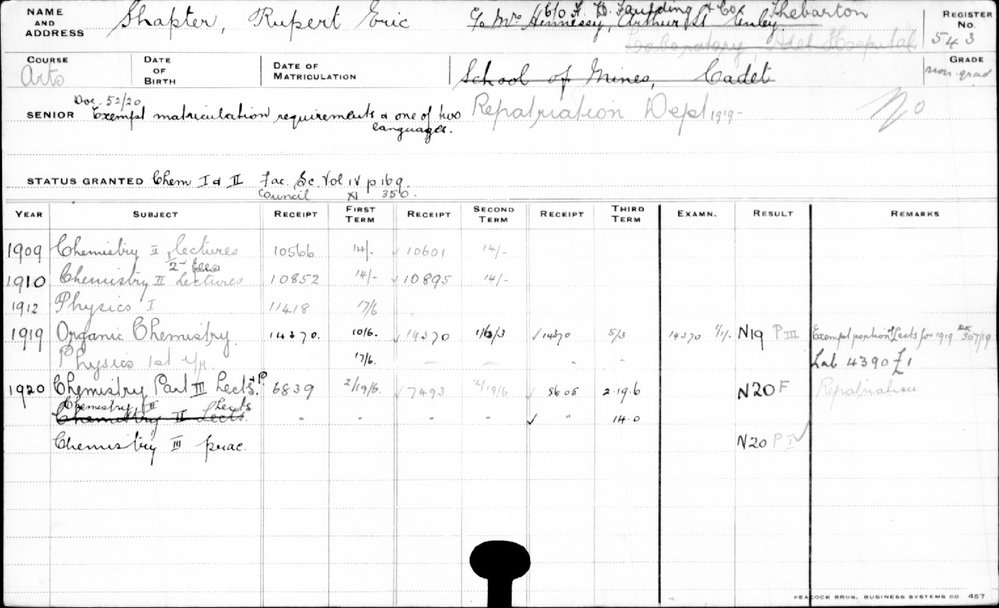 NAME AND ADDRESS Shapter, Rupert Eric C/o F. H. Faulding & Co. Thebarton REGISTER No. 543
C/o Mrs Hennessy, Arthur St Unley
Laboratory Adel Hospital
COURSE Arts DATE OF BIRTH DATE OF MATRICULATION School of Mines, Cadet GRADE non-grad
Doc. 52/20
SENIOR Exempt matriculation requirements & one of two languages. Repatriation Dept 1919- No
STATUS GRANTED Chem I & II Fac. Sc. Vol IV p 169.
Council XI 350.
YEAR SUBJECT RECEIPT FIRST TERM RECEIPT SECOND TERM RECEIPT THIRD TERM EXAMN. RESULT REMARKS
1909 Chemistry II Lectures 10566 14/- ✓ 10601 14/-
1910 Chemistry II Lectures 10852 14/- ✓ 10895 14/-
1912 Physics I 11418 17/6
1919 Organic Chemistry 14270. 10/6. ✓ 14270 ✓ 14270 5/3 14270 N19 P III Exempt portion Lects for 1919 Doc 307/19
Physics 1st yr 17/6. – – – – Lab 4390 £1
1920 Chemistry Part III Lects & P 6839 2/19/6 ✓ 7493 2/19/6 ✓ 5606 2.19.6 N20 F Repatriation
Chemistry II Lects
Chemistry II Lects. - - - - ✓ " 14.0
Chemistry III prac. N20 P IV
PEACOCK BROS. BUSINESS SYSTEMS CO 457